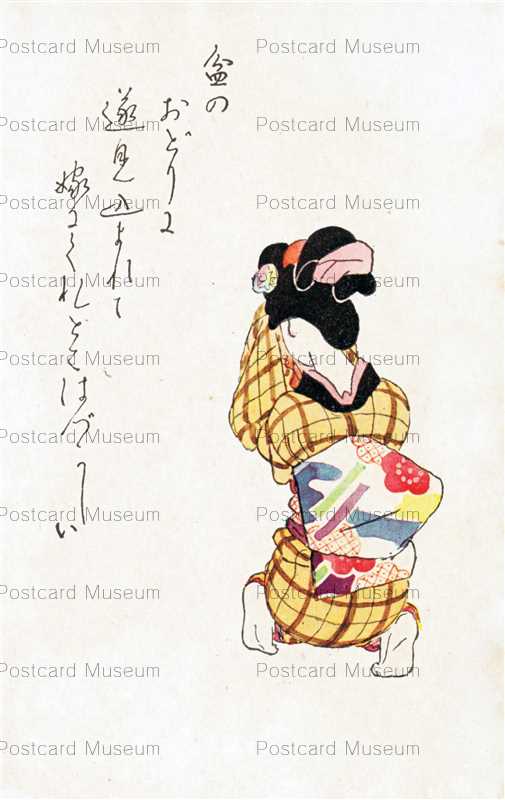 盆の
おどりに
遂見込まれて
嫁にくれとははづかしい
Postcard Museum Postcard Museum
Postcard Museum Postcard Museum
Postcard Museum Postcard Museum
Postcard Museum Postcard Museum
Postcard Museum Postcard Museum
Postcard Museum Postcard Museum
Postcard Museum Postcard Museum
Postcard Museum Postcard Museum
Postcard Museum Postcard Museum
Postcard Museum Postcard Museum